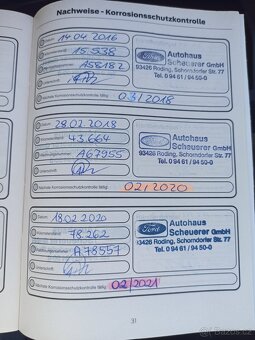 Nachweise - Korrosionsschutzkontrolle
Datum: 14.04.2016
15.538
A55182
Nächste Korrosionsschutzkontrolle fällig: 03/2018
Ford
Autohaus
Scheuerer GmbH
93426 Roding, Schorndorfer Str. 77
Tel. 0 94 61 / 94 50-0
Datum: 28.02.2018
43.664
A67955
Unterschrift:
Nächste Korrosionsschutzkontrolle fällig: 02/2020
Ford
Autohaus
Scheuerer GmbH
93426 Roding, Schorndorfer Str. 77
Tel. 0 94 61 / 94 50-0
Datum: 18.02.2020
78.262
A78557
Unterschrift:
Nächste Korrosionsschutzkontrolle fällig: 02/2021
Ford
Autohaus
Scheuerer GmbH
93426 Roding, Schorndorfer Str. 77
Tel. 0 94 61 / 94 50-0
31